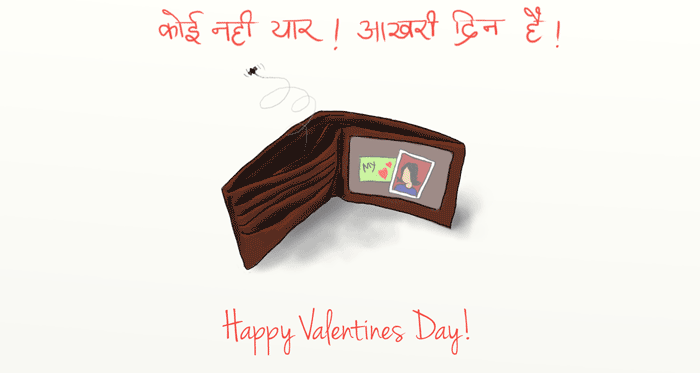 कोई नही यार ! आखरी दिन है !
My
Happy Valentines Day!